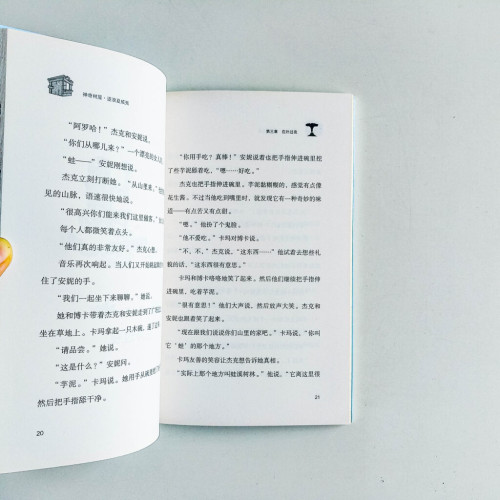 神奇树屋·
“阿罗哈！”杰克和安妮说。
“你们从哪儿来？”一个漂亮的
“蛙——”安妮刚想说。
杰克立刻打断她。“从山里来，”
见的山脉，语速很快地说。
“很高兴你们能来我们这里做客。”
每个人都微笑着点头。
“他们真的非常友好。”杰克心想。
音乐再次响起。当人们又开始跳
住了安妮的手。
“我们一起坐下来聊聊。”她说。
她和博卡带着杰克和安妮走到了
坐在草地上。卡玛拿起一只木碗，
“请品尝。”她说。
“这是什么？”安妮问。
“芋泥。”卡玛说。她用手从碗里
然后把手指舔干净。
20
第三章
“你用手吃？真棒！”安妮说着也把手指伸进碗里挖
了些芋泥舔着吃。“嗯……好吃。”
杰克也把手指伸进碗里。芋泥黏糊糊的，感觉有点像
花生酱。不过当他尝到嘴里时，就发现它有一种奇妙的味
道——有点苦又有点甜。
“嗯。”他扮了个鬼脸。
“他不爱吃。”卡玛对博卡说。
“不，不，”杰克说，“这东西……”他试着去想些礼
貌的话，“这东西很有意思。”
卡玛和博卡咯咯地笑了起来。然后他们继续把手指伸
进碗里，吃着芋泥。
“很有意思！”他们大声说，然后放声大笑。杰克和
安妮也跟着笑了起来。
“现在跟我们说说你们山里的家吧。”卡玛说，“你叫
它‘蛙’的那个地方。”
卡玛友善的笑容让杰克想告诉她真相。
“实际上那个地方叫蛙溪柯林。”他说，“它离这里很
21